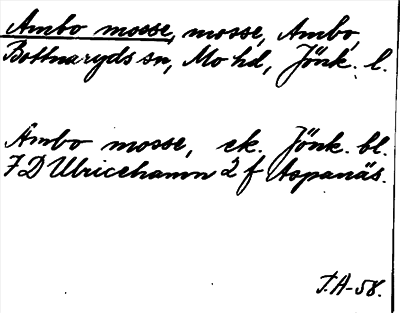 Ambo mosse, mosse, Ambo,
Bottnaryds sn, Mo hd, Jönk. l.
Ambo mosse, ek. Jönk. bl.
7D Ulricehamn 2 f Aspanäs.
T.A-58.